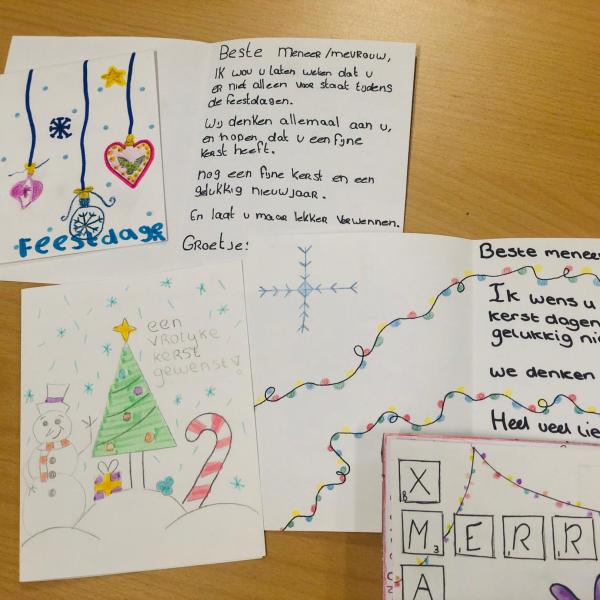 Feestdage
Beste meneer/mevrouw,
Ik wou u laten weten dat u
er niet alleen voor staat tijdens
de feestdagen.
Wij denken allemaal aan u,
en hopen, dat u een fijne
kerst heeft.
nog een fijne kerst en een
gelukkig nieuwjaar.
En laat u maar lekker verwennen.
Groetje:
een
vrolijke
kerst
gewenst!
Beste menee
Ik wens u
kerst dagen
gelukkig ni
we denken
Heel veel lie
X
8
M E R R
3
A